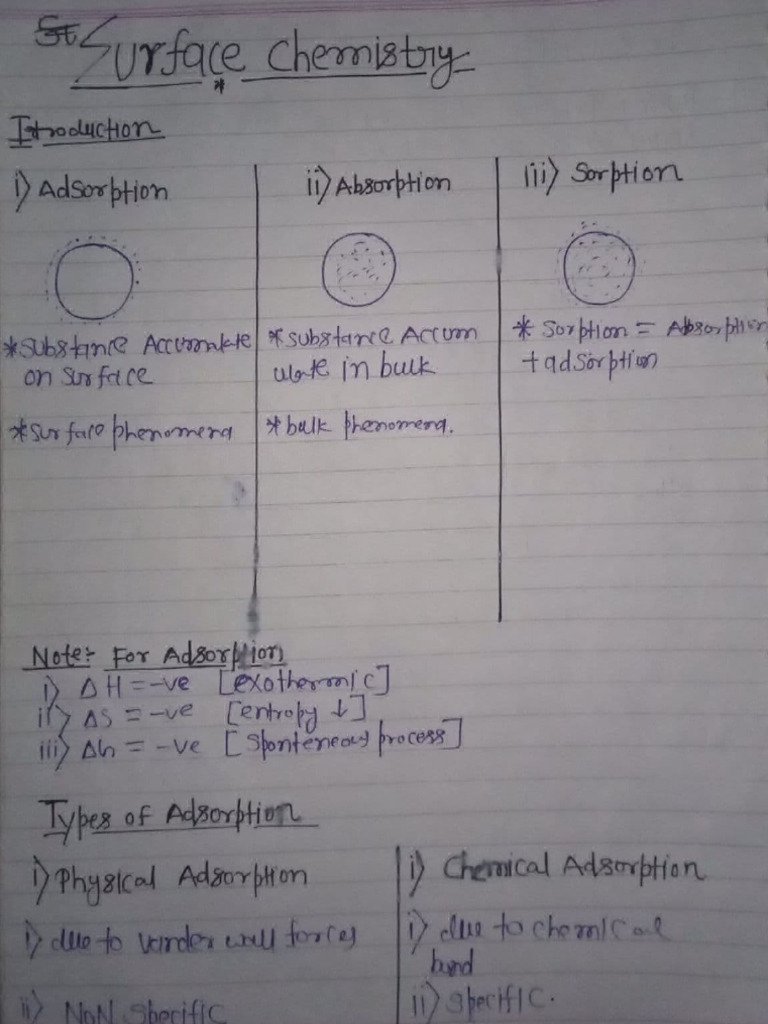 Surface Chemistry
*
Introduction
i) Adsorption
*Substance Accumulate
on Surface
*Surface phenomena
ii) Absorption
*Substance Accum
ulate in bulk
*bulk phenomena.
iii) Sorption
* Sorption = Absorption
+ adsorption
Note:- For Adsorption
i) ΔH = -ve [exothermic]
ii) ΔS = -ve [entropy ↓]
iii) ΔG = -ve [Sponteneous process]
Types of Adsorption
i) Physical Adsorption
i) due to vander wall forces
ii) NoN Specific
i) Chemical Adsorption
i) due to chemical
bond
ii) Specific.